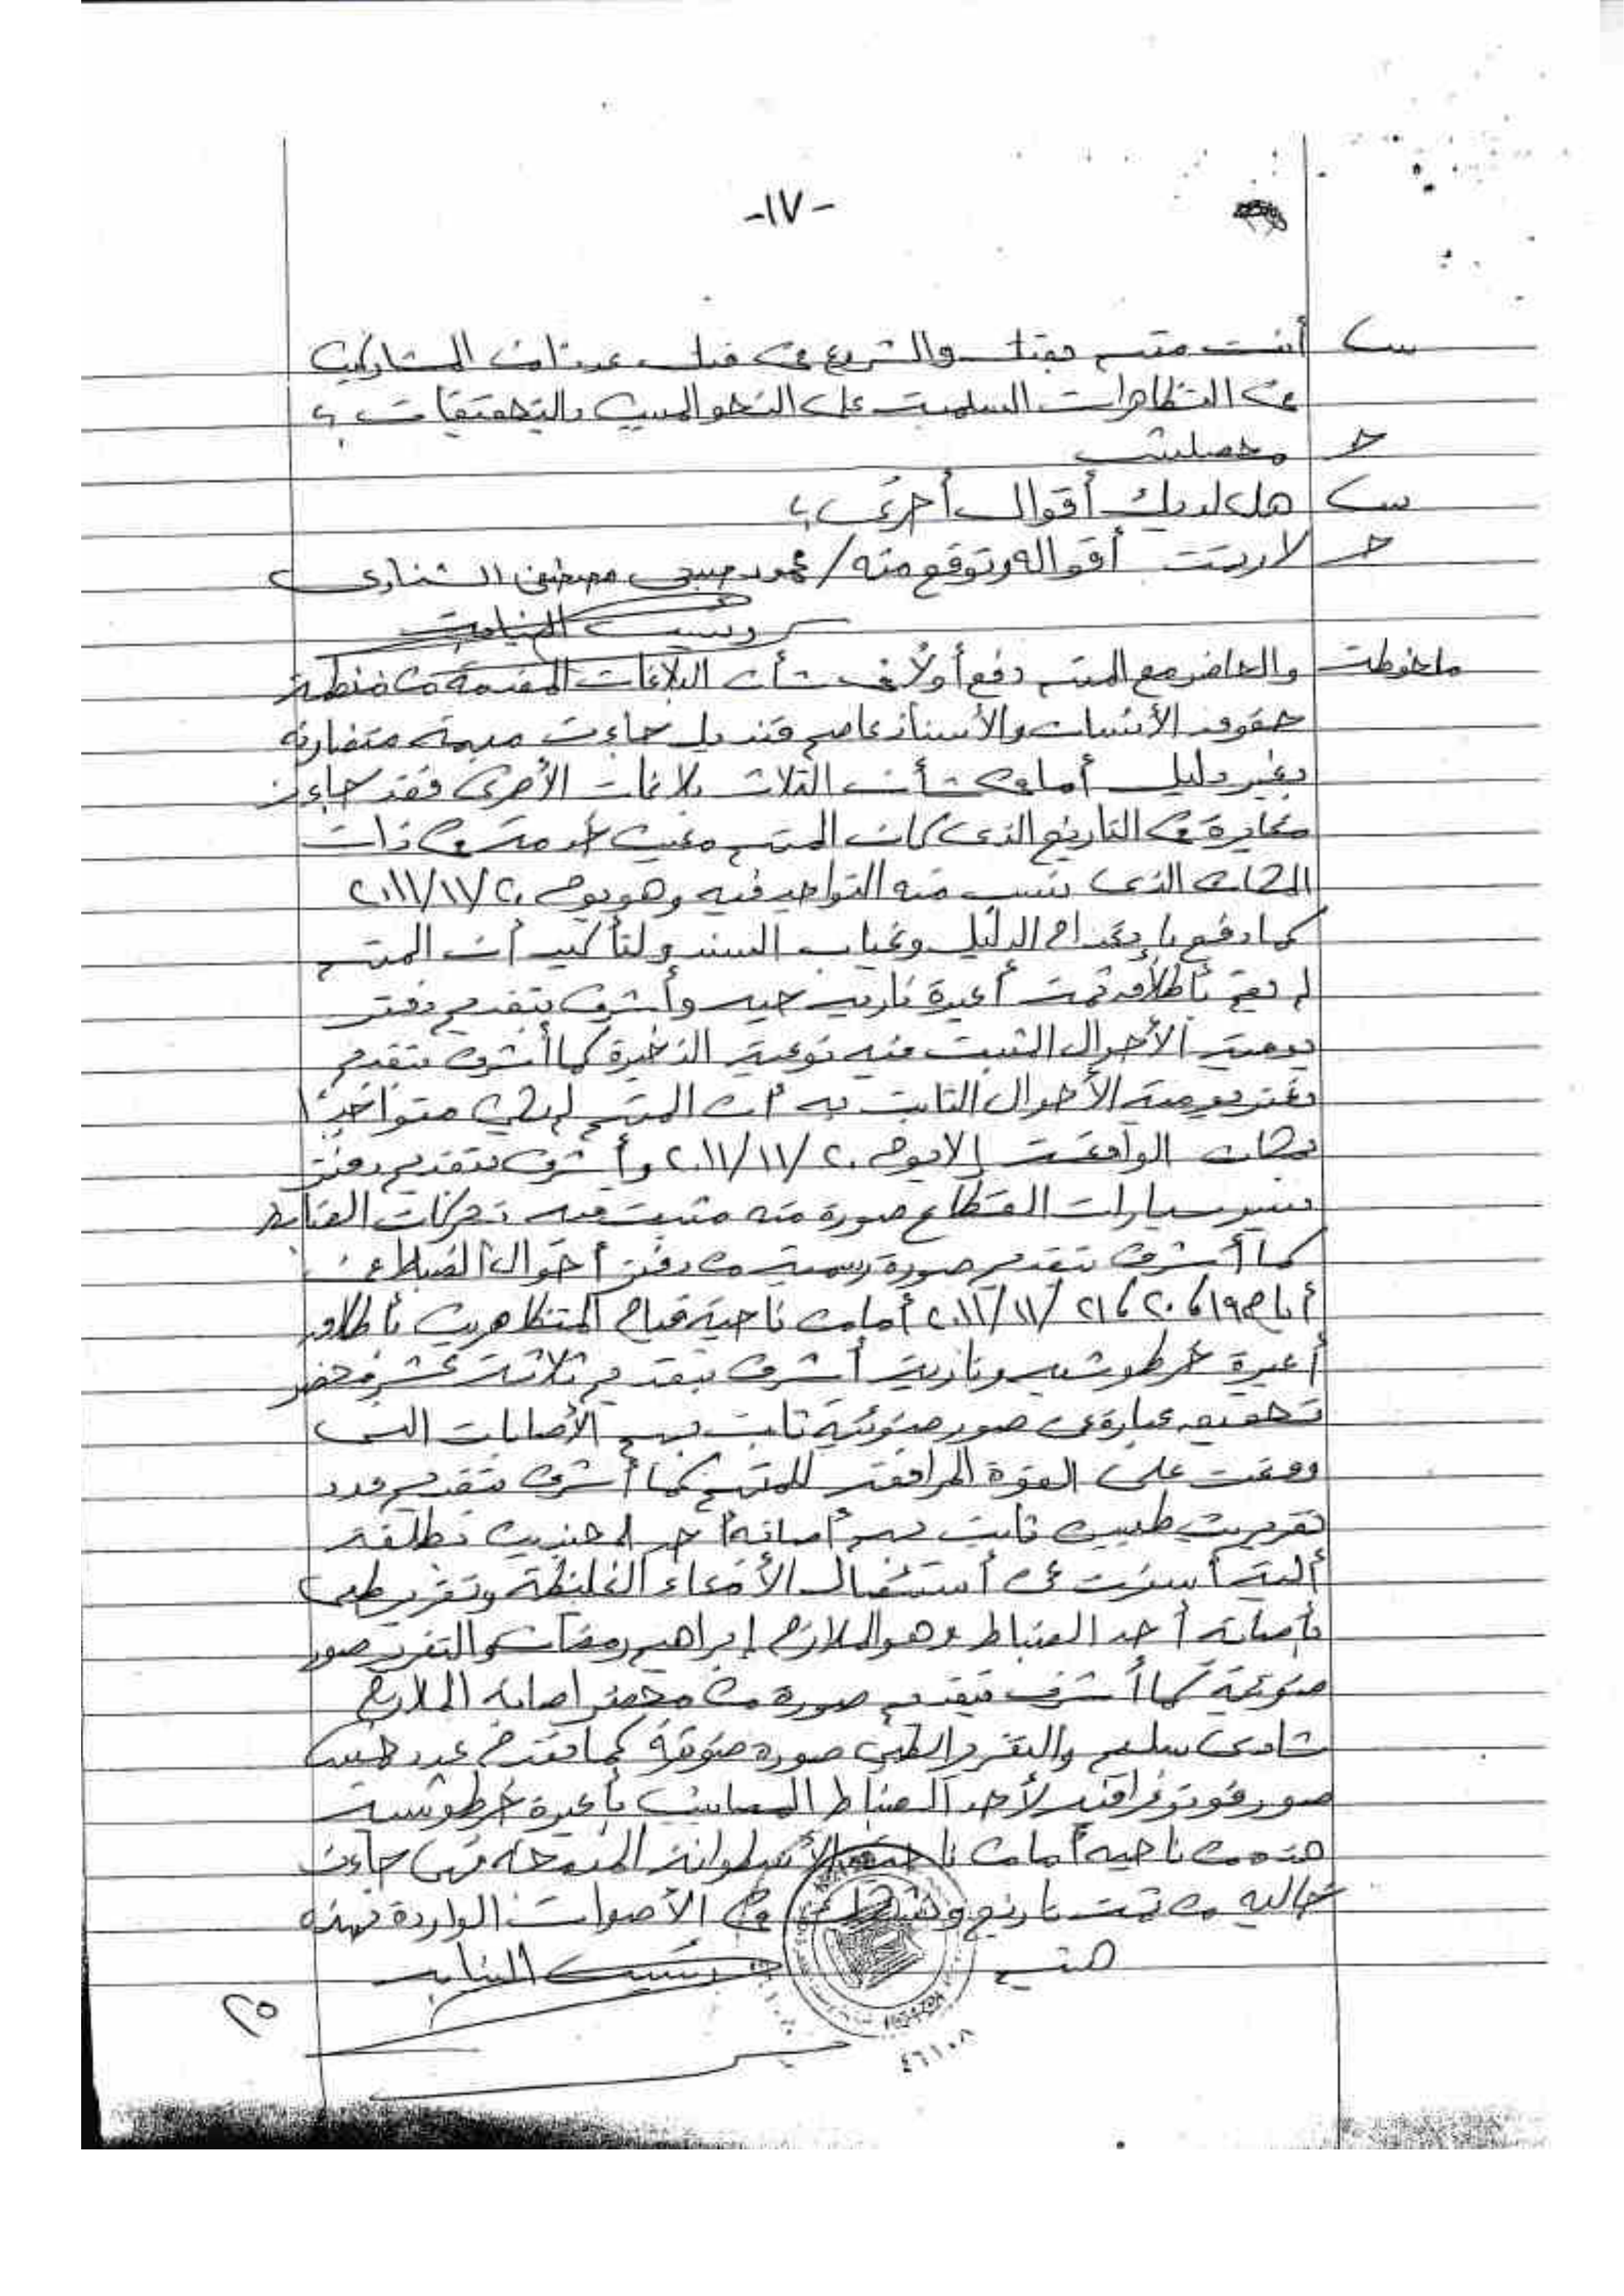 -١٧-
س أنت متهم بقتل والشروع في قتل عدد من المشاركين
في التظاهرات السلمية على النحو المبين بالتحقيقات ؟
ج محصلش
س هل لديك أقوال أخرى ؟
ج لا وتمت أقواله وتوقع منه / محمود صبحى مصطفى الشناوى
رئيس النيابة
ملحوظة والحاضر مع المتهم دفع أولاً فى شأن البلاغات المقدمة من منظمة
حقوق الأنسان والأستاذ عاصم قنديل جاءت مبهمة متضاربه
بغير دليل أما فى شأن الثلاث بلاغات الأخرى فقد جاءت
مغايرة فى التاريخ الذى كان المتهم فى ذات
المكان الذى نسب منه التواجد فيه وهو يوم ٢٠١١/١١/٢٠
كما دفع بإنعدام الدليل وغياب السند ولتأكيد أن المتهم
لم يقم بأطلاق ثمت أعيرة ناريه حيه وأتشرف بتقديم دفتر
يومية الأحوال المثبت فيه نوعية الذخيرة كما أتشرف بتقديم
دفتر يومية الأحوال الثابت به أن المتهم لم يكن متواجداً
بمكان الواقعة إلا يوم ٢٠١١/١١/٢٠ وأتشرف بتقديم دفتر
سير سيارات القطاع صورة منه مثبت فيه تحركات الضابط
كما أتشرف بتقديم صورة رسمية من دفتر أحوال الضباط عن
أيام ١٩، ٢٠، ٢١/١١/٢٠١١ أما من ناحية قيام المتظاهرين بأطلاق
أعيرة خرطوشيه ونارية أتشرف بتقديم ثلاثة عشر محضر
تحقيق عبارة عن صور ضوئية ثابت بهم الأصابات التى
وقعت على القوة المرافقة للمتهم كما أتشرف بتقديم عدد
تقريرين طبيين ثابت بهم أصابة أحد المجندين بطلقه
أليه أسفرت عن أستئصال الأمعاء الغليظة وتقرير طبى
بأصابة أحد الضباط وهو الملازم إبراهيم رمضان والتقرير صور
ضوئية كما أتشرف بتقديم صورة من محضر اصابة الملازم
شادى سليم والتقرير الطبى صورة ضوئية كما نقدم عدد
صور فوتوغرافيه لأحد الضباط المصابين بأعيرة خرطوشية
هذه من ناحيه أما من ناحية الأسطوانة المدمجه فهى جاءت
خاليه من ثمت تاريخ فى الأصوات الواردة بهذه
رئيس النيابه
٢٥
٤٦١٠٨